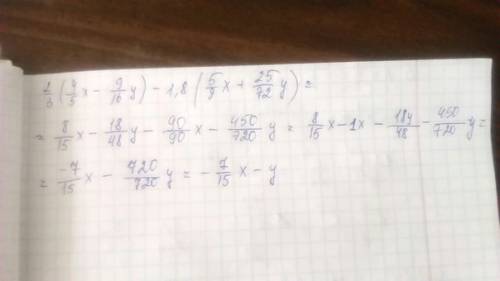 2/3 (4/5 x - 9/16 y) - 1,8 (5/9 x + 25/72 y) =
= 8/15 x - 18/48 y - 90/90 x - 450/720 y = 8/15 x - 1x - 18y/48 - 450/720 y =
= -7/15 x - 720/720 y = - 7/15 x - y